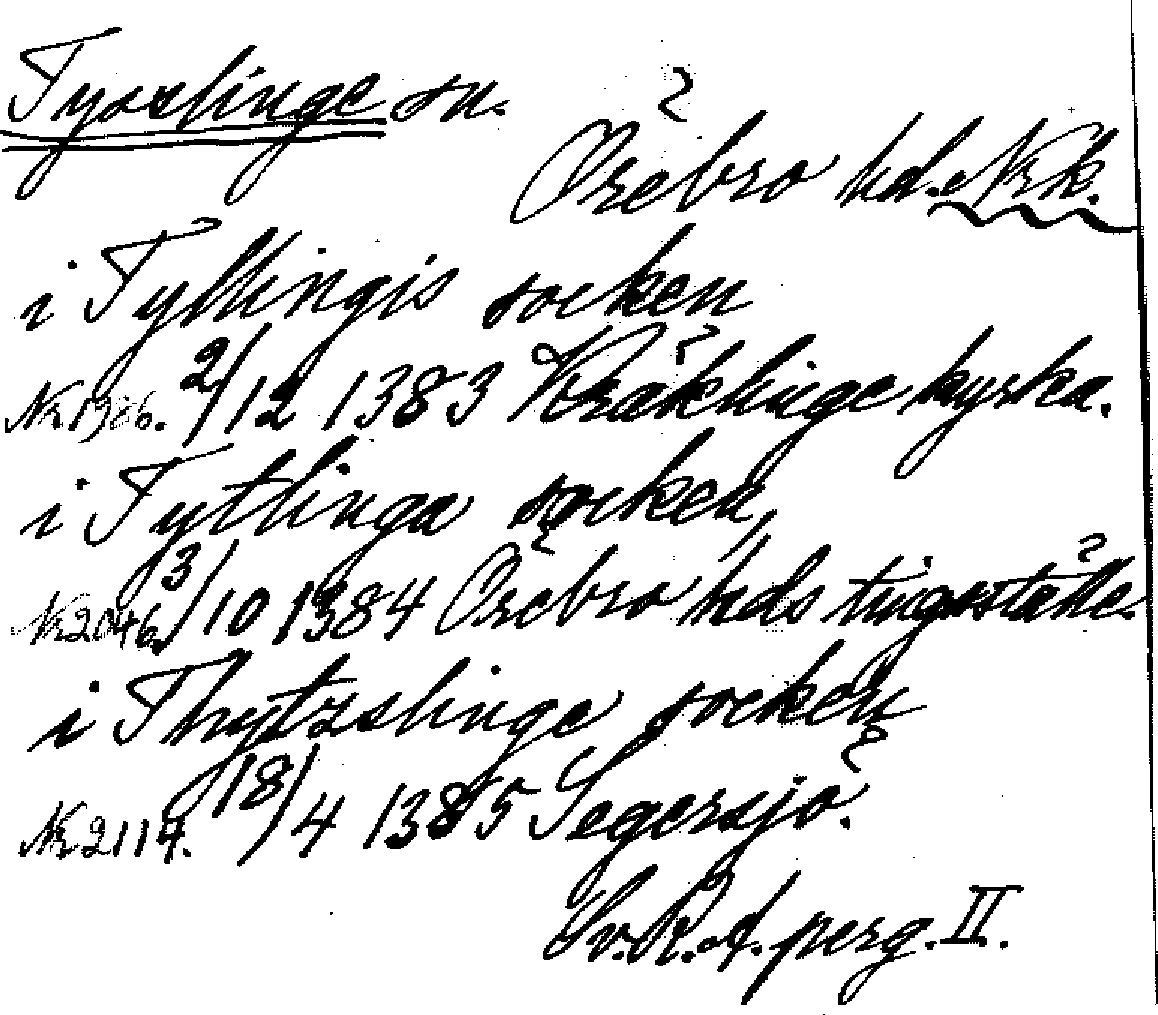 Tysslinge sn.
Örebro hd. Nrk.
i Tyllingis socken
Nr 1986. 2/12 1383 Kräklinge kyrka.
i Tytlinga socken,
Nr 2046. 3/10 1384 Örebro hds tingsställe.
i Thytzslinge socken
Nr 2114. 18/4 1385 Segersjö.
Sv. R. A. perg. II.